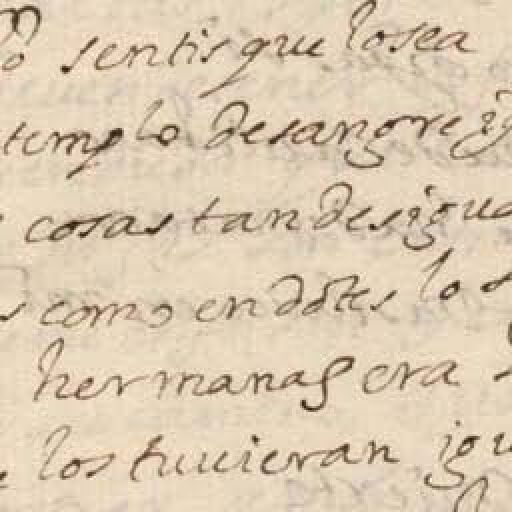 sentis que lo sea
templo de sangre
cosas tan desigua
como en dótes lo s
hermanas era
los tuuieran igu